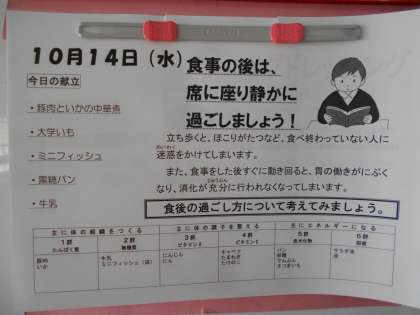 10月14日（水）
今日の献立
・豚肉といかの中華煮
・大学いも
・ミニフィッシュ
・黒糖パン
・牛乳
食事の後は、
席に座り静かに
過ごしましょう！
立ち歩くと、ほこりがたつなど、食べ終わっていない人に
迷惑をかけてしまいます。
また、食事をした後すぐに動き回ると、胃の働きがにぶく
なり、消化が充分に行われなくなってしまいます。
食後の過ごし方について考えてみましょう。
主に体の組織をつくる 主に体の調子を整える 主にエネルギーになる
1群 2群 3群 4群 5群 6群
たんぱく質 無機質 ビタミンA ビタミンC 炭水化物 脂質
豚肉 牛乳 にんじん キャベツ パン サラダ油
いか ミニフィッシュ（袋） にら たまねぎ 砂糖
たけのこ でんぷん
さつまいも